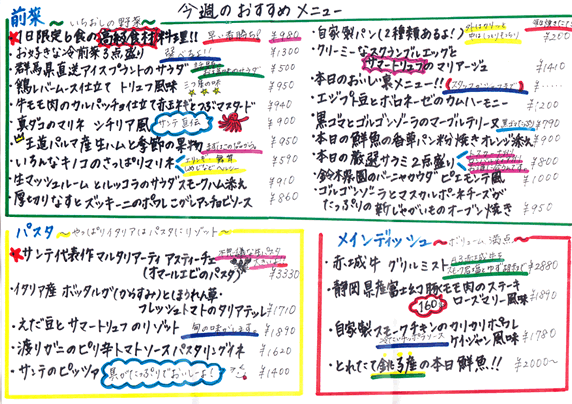 今週のおすすめメニュー
前菜 ～いちおしの野菜～
★1日限定6食の高級食材料理!! 早い者勝ち ¥980
・お好きな冷前菜3点盛り ¥1300
・群馬県直送アイスプラントのサラダ ¥500
・鶏レバームース仕立て トリュフ風味 ¥950
・牛モモ肉のカルパッチョ仕立て赤玉ネギとつぶマスタード ¥940
・真ダコのマリネ シチリア風 サンテ直伝 ¥900
王道パルマ産生ハムと季節の果物 ¥950
・いろんなキノコのさっぱりマリネ ¥590
・生マッシュルームとルッコラのサラダスモークハム添え ¥910
・厚切りなすとズッキーニのポラレこがしアンチョビソース ¥860
・自家製パン(2種類あるよ!) 外はカリーッと 中はもっちりもっちり ¥200
・クリーミーなスクランブルエッグと
サマートリュフのマリアージュ ¥1410
・本日のおいしい裏メニュー!!
・エジプト豆とボロネーゼのカムハーモニー ¥1200
・黒ゴマとゴルゴンゾーラのマーブルテリーヌ ¥790
・本日の鮮魚の香草パン粉焼きオレンジ添え ¥900
・本日の厳選サラミ2点盛り ¥800
・鈴木農園のバーニャカウダ ピエモンテ風 ¥1000
・ゴルゴンゾーラとマスカルポーネチーズが
たっぷりの新じゃがいものオーブン焼き ¥950
パスタ ～やっぱりイタリアはパスタにリゾット～
★サンテ代表作マルタリアーティ アスティーチェ
(オマールエビのパスタ) ¥3330
・イタリア産 ボッタルガ(からすみ)とほうれん草・
フレッシュトマトのタリアテッレ ¥1710
・えだ豆とサマートリュフのリゾット 旬の味がします ¥1890
・渡りガニのピリ辛トマトソースパスタリングイネ ¥1620
・サンテのピッツァ 具がたっぷりでおいしーよ! ¥1400
メインディッシュ ～ボリューム満点～
・赤城牛 グリルミスト ¥2880
・静岡県産富士幻豚モモ肉のステーキ
160g ローズマリー風味 ¥1890
・自家製スモークチキンのカリカリポラレ
ケイジャン風味 ¥1780
・とれたて銚子産の本日鮮魚!! ¥2000～